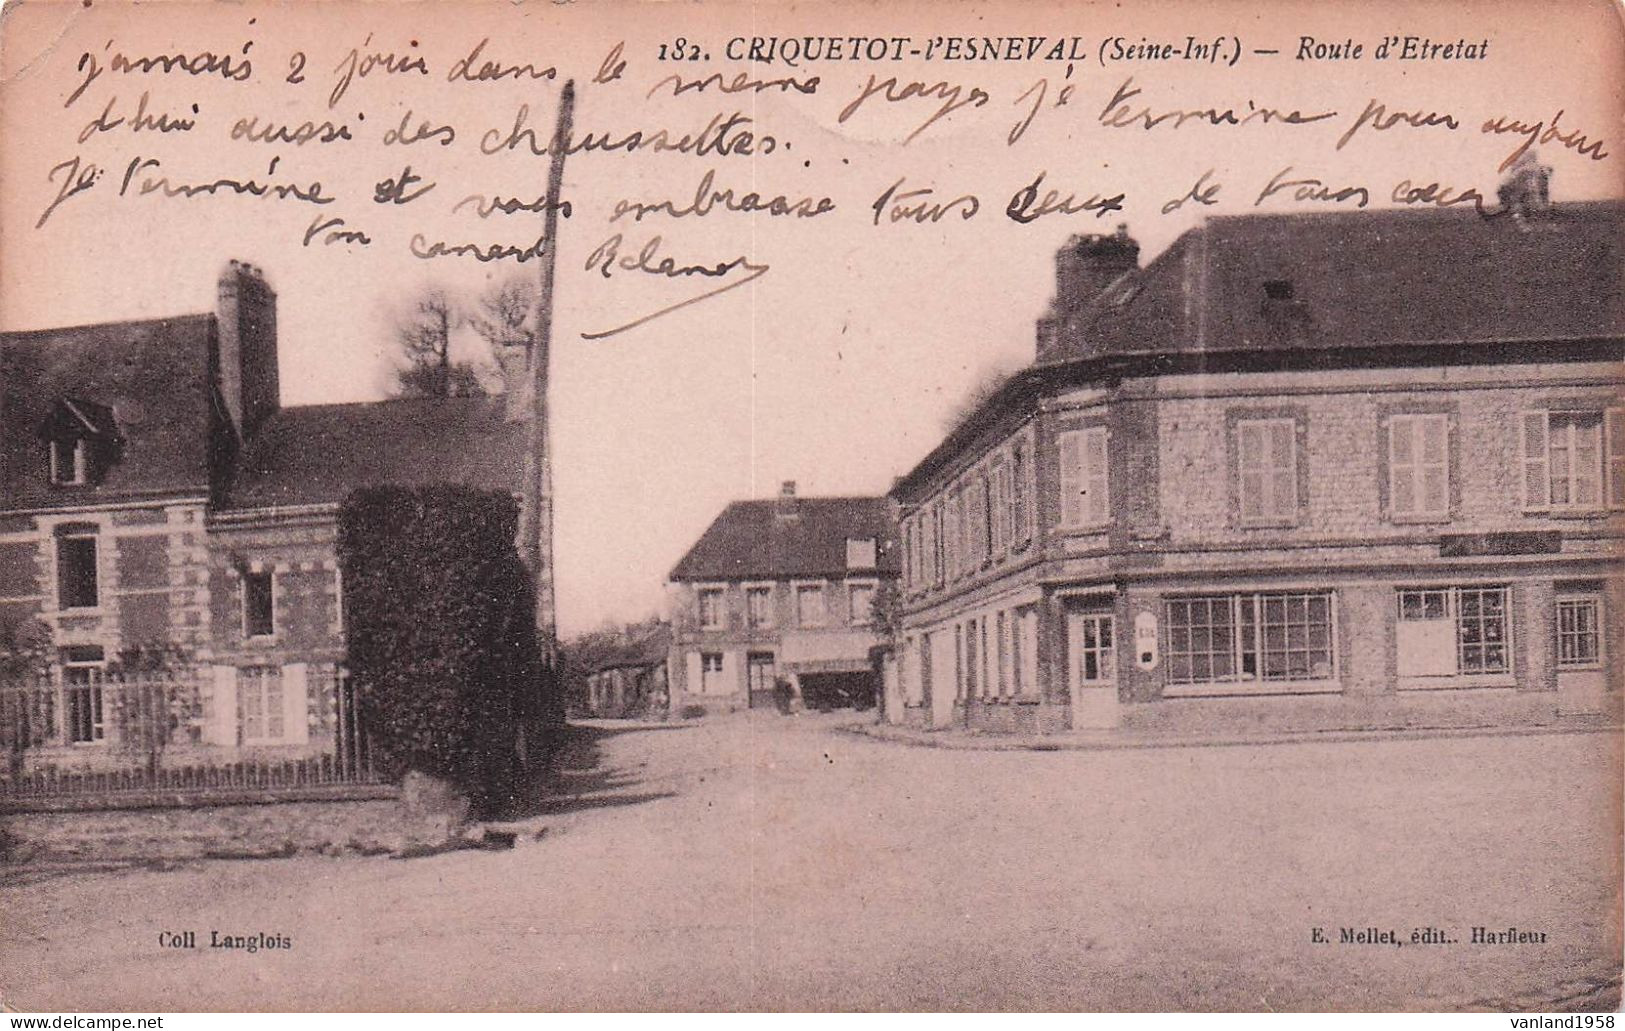 182. CRIQUETOT-l'ESNEVAL (Seine-Inf.) — Route d'Etretat
j'amais 2 jour dans le même payes je termine pour aujour
d'hui aussi des chaussettes.
Je termine et vous embrasse tous deux de tous coeur
ton canard Roland
Coll Langlois
E. Mellet, édit.. Harfleur
delcampe.net
vanland1958